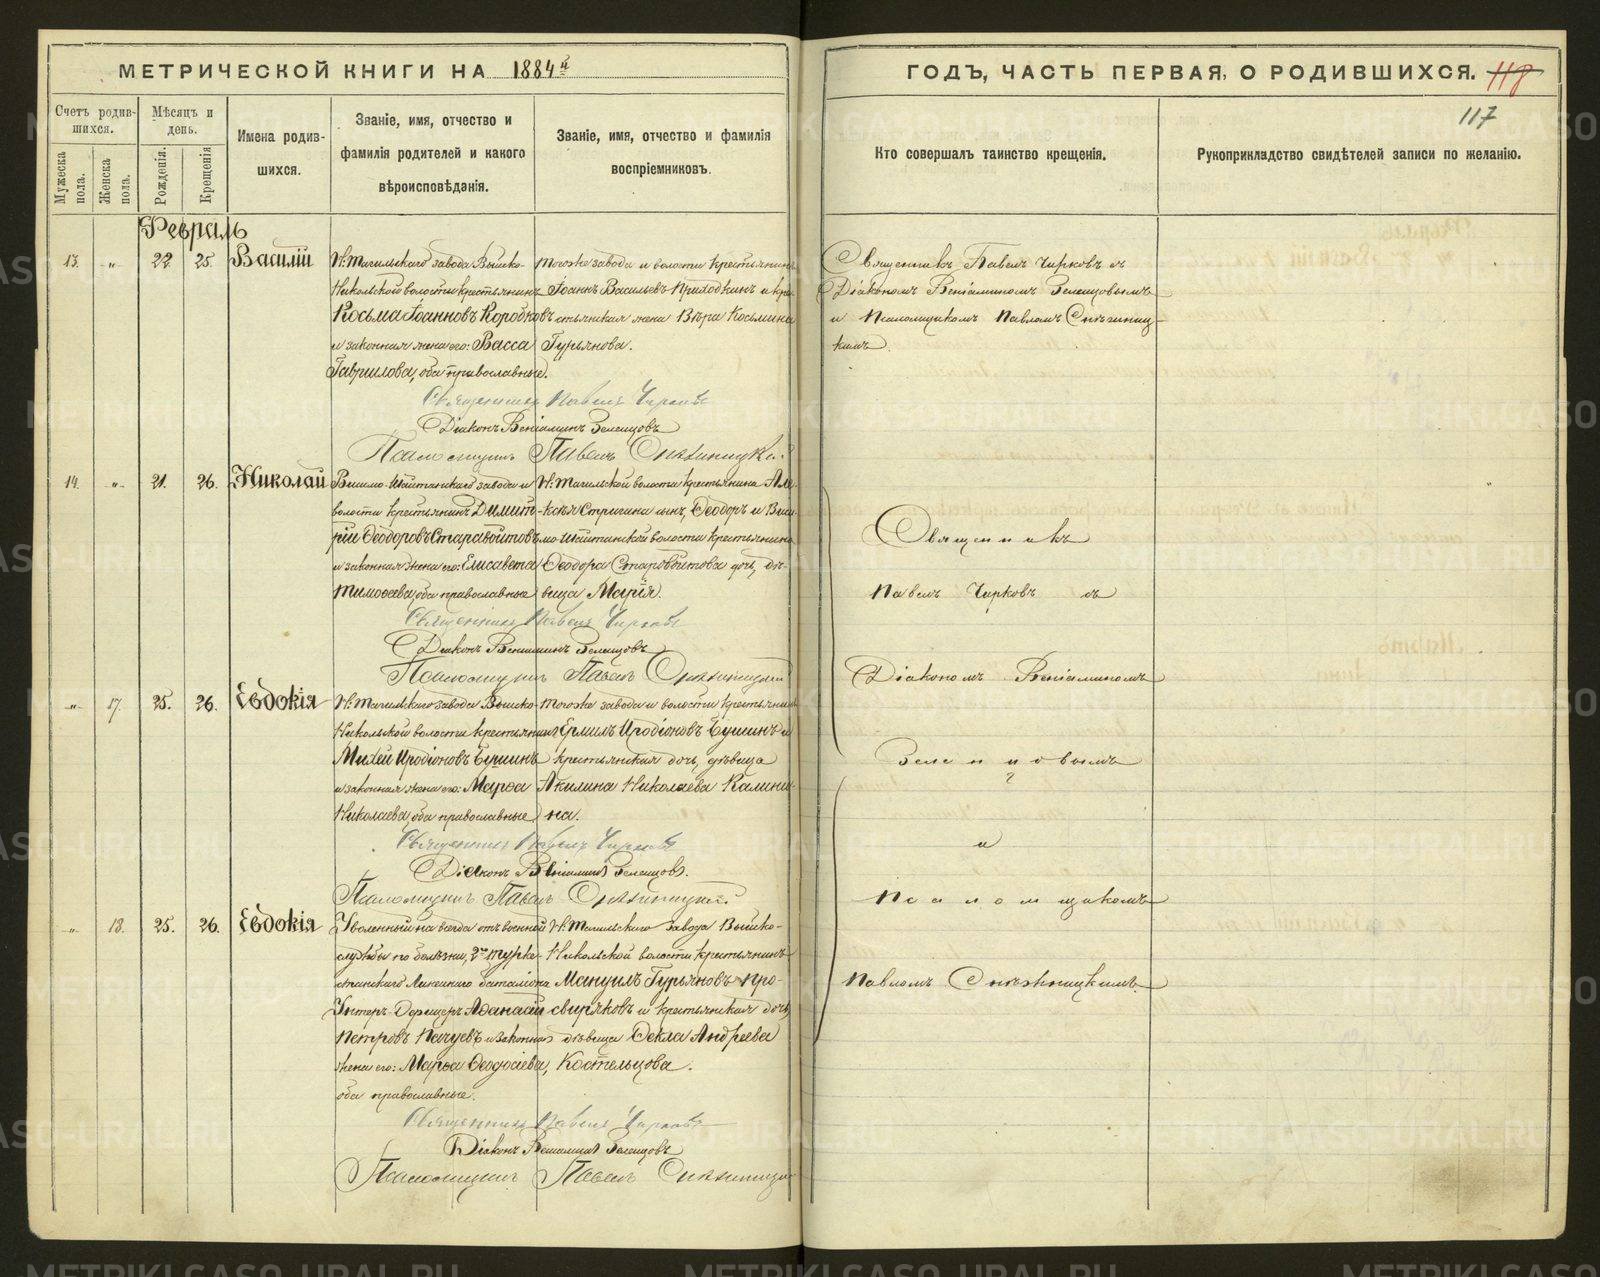 МЕТРИЧЕСКОЙ КНИГИ НА 1884й
ГОДЪ, ЧАСТЬ ПЕРВАЯ, О РОДИВШИХСЯ. 118
117
Счетъ родив-
шихся.
Мужеска пола.
Женска пола.
Мѣсяцъ и
день.
Рожденія.
Крещенія
Имена родив-
шихся.
Званіе, имя, отчество и
фамилія родителей и какого
вѣроисповѣданія.
Званіе, имя, отчество и фамилія
воспріемниковъ.
Кто совершалъ таинство крещенія.
Рукоприкладство свидѣтелей записи по желанію.
Февраль
13. „ 22 25. Василій
Н. Тагильскаго завода Выйско-
Никольской волости крестьянинъ
Косьма Іоанновъ Коробковъ
и законная жена его: Васса
Гавриилова, оба православные.
тогоже завода и волости крестьянинъ
Іоаннъ Васильевъ Приходкинъ и кре-
стьянская жена Вѣра Косьмина
Гурьянова.
Священникъ Павелъ Чирковъ съ
Діакономъ Веніаминомъ Зеленцовымъ
и Псаломщикомъ Павломъ Снѣжниц-
кимъ.
Священникъ Павелъ Чирковъ
Діаконъ Веніаминъ Зеленцовъ
Псаломщикъ Павелъ Снѣжницкій
14. „ 21. 26. Николай
Висимо-Шайтанскаго завода и
волости крестьянинъ Димит-
рій Ѳеодоровъ Старовойтовъ
и законная жена его: Елисавета
Тимоѳеева, оба православные
Н. Тагильской волости крестьянина Але-
ксѣя Стригина сынъ, Ѳеодоръ и Виси-
мо-Шайтанской волости крестьянина
Ѳеодора Старовойтова дочь, дѣ-
вица Марія.
Священникъ Павелъ Чирковъ
Діаконъ Веніаминъ Зеленцовъ
Псаломщикъ Павелъ Снѣжницкій
„ 17. 25. 26. Евдокія
Н. Тагильскаго завода Выйско-
Никольской волости крестьянинъ
Михей Иродіоновъ Ершинъ
и законная жена его: Марѳа
Николаева, оба православные
тогоже завода и волости крестьянинъ
Ермилъ Иродіоновъ Ершинъ и
крестьянская дочь, дѣвица
Акилина Николаева Калини-
на.
Священникъ Павелъ Чирковъ
Діаконъ Веніаминъ Зеленцовъ.
Псаломщикъ Павелъ Снѣжницкій
„ 18. 25. 26. Евдокія
Уволенный на всегда отъ военной
службы по болѣзни, 2го Турке-
станскаго Линейнаго баталіона
Унтеръ-Офицеръ Аѳанасій
Петровъ Пачуевъ и законная
жена его: Марѳа Ѳеодосіева,
оба православные.
Н. Тагильскаго завода Выйско-
Никольской волости крестьянинъ
Мануилъ Гурьяновъ Про-
свиряковъ и крестьянская дочь,
дѣвица Ѳекла Андреева
Костельцова.
Священникъ Павелъ Чирковъ
Діаконъ Веніаминъ Зеленцовъ
Псаломщикъ Павелъ Снѣжницкій
Священникъ
Павелъ Чирковъ съ
Діакономъ Веніаминомъ
Зеленцовымъ
и
Псаломщикомъ
Павломъ Снѣжницкимъ.
METRIKI.GASO-URAL.RU